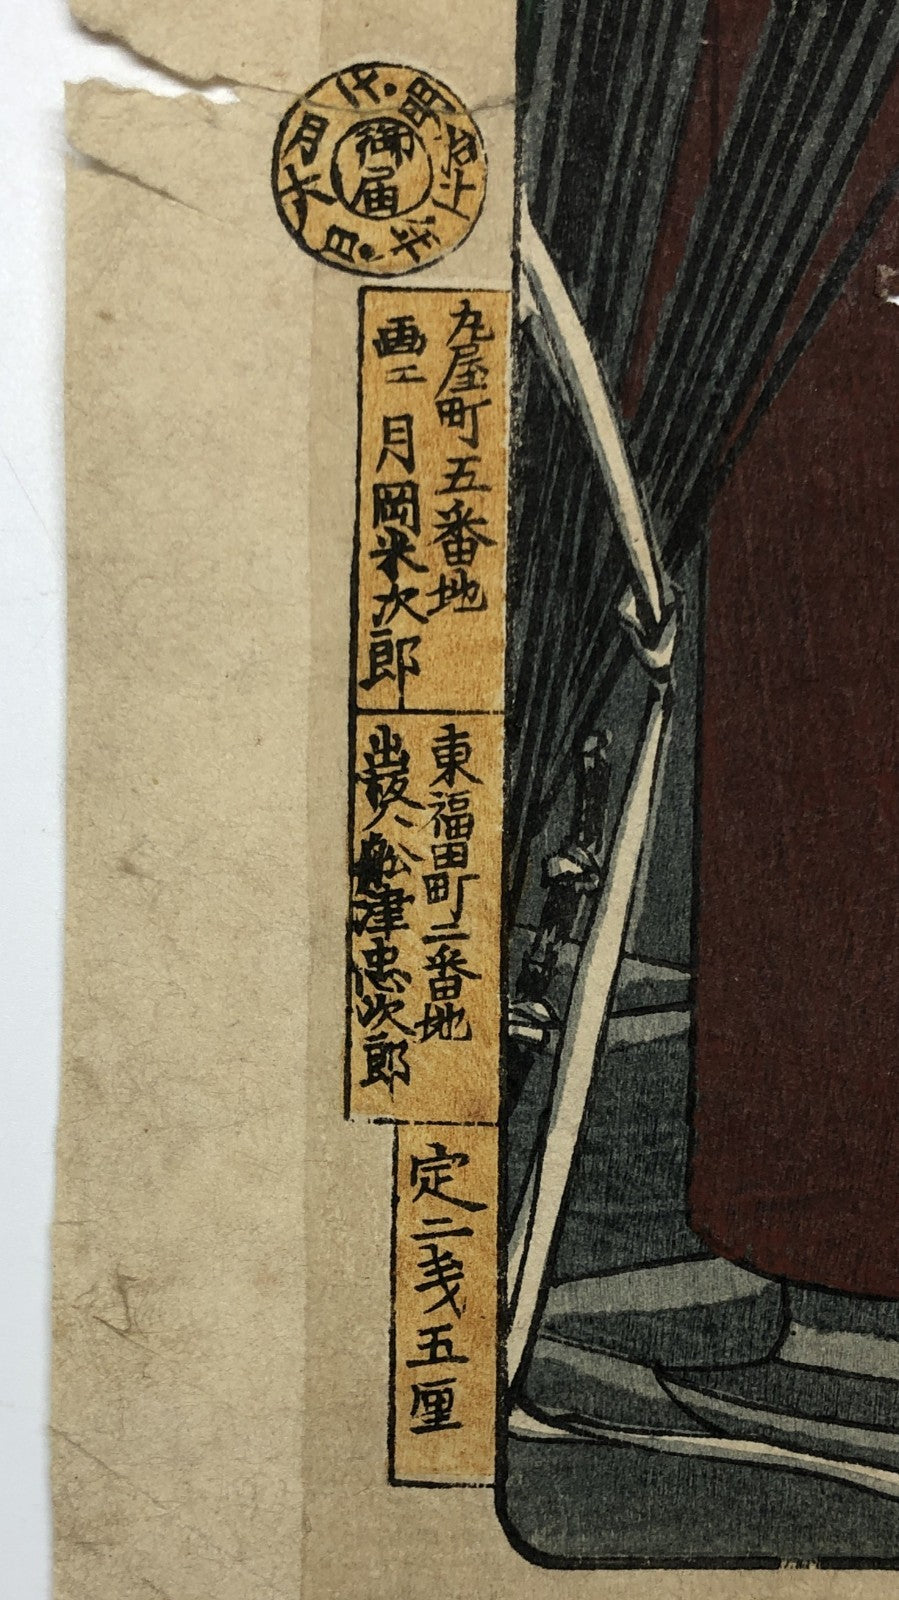 御届
明治十一年
月六日
丸屋町五番地
画工 月岡米次郎
東福田町二番地
出版人 船津忠次郎
定二戋五厘